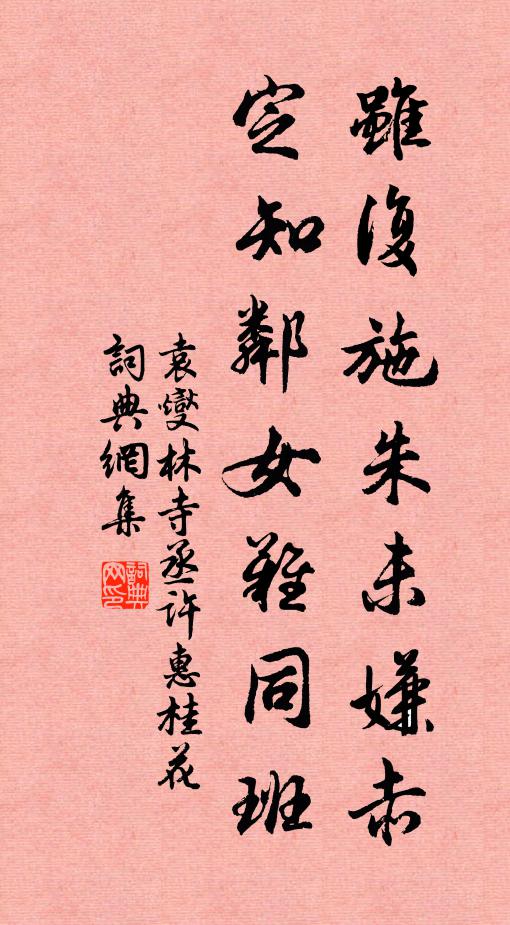 雖復施朱未嫌赤
定知鄰女難同班
袁燮林寺丞許惠桂花
詞典網集
詞典網印